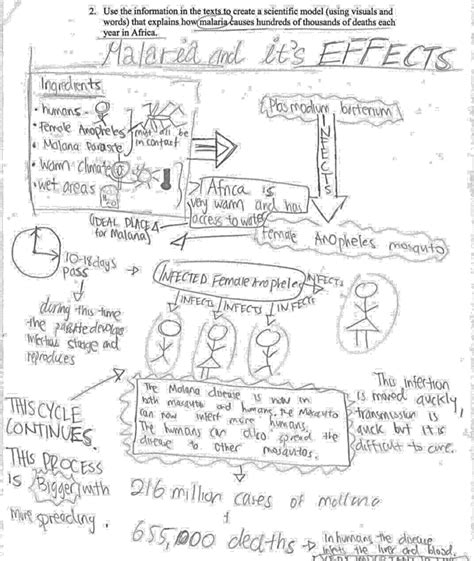 2. Use the information in the texts to create a scientific model (using visuals and
words) that explains how malaria causes hundreds of thousands of deaths each
year in Africa.
Malaria and it's EFFECTS
Ingredients
• humans
• Female Anopheles
• Malana Parasite
• Warm Climate
• wet areas
must all be
in contact
(Plasmodium
INFECTS
Africa is
very warm and has
access to water
(IDEAL PLACE
for Malana)
Female Anopheles mosquito
10-18 days
pass
during this time
the parasite develops
stage and
reproduces
INFECTED Female Anopheles
INFECTS
INFECTS INFECTS INFECTS
The Malana disease is now in
both mosquito and humans. The Mosquito
can now infect more humans.
The humans can also spread the
disease to other mosquitos.
This infection
is moved quickly,
transmission is
quick but it is
difficult to cure.
THIS CYCLE
CONTINUES.
THIS PROCESS
IS Bigger with
more spreading.
216 million cases of malana
655,000 deaths
In humans the disease
infects the liver and blood.